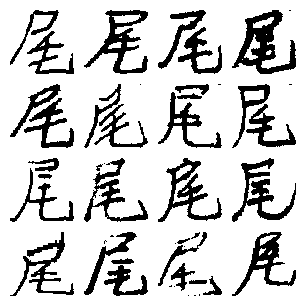 尾尾尾尾
尾尾尾尾
尾尾尾尾
尾尾尾尾